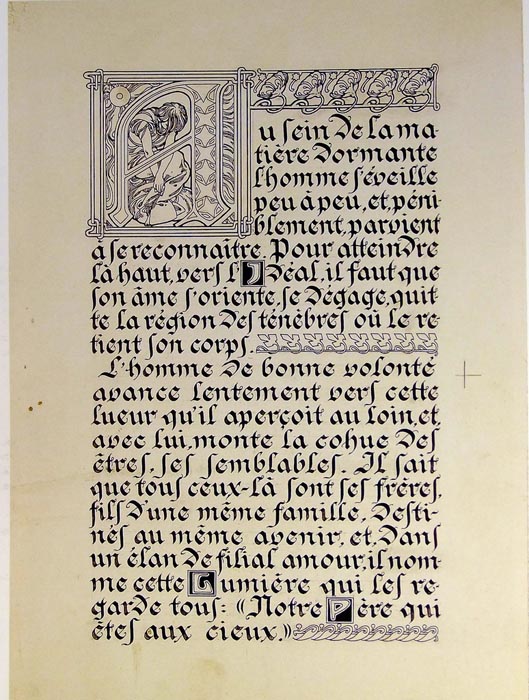 Au sein de la ma
tière dormante
l'homme s'éveille
peu à peu, et, péni
blement, parvient
à se reconnaitre. Pour atteindre
là haut, vers l'Idéal, il faut que
son âme s'oriente, se dégage, quit
te la région des ténèbres où le re
tient son corps.
L'homme de bonne volonté
avance lentement vers cette
lueur qu'il aperçoit au loin, et,
avec lui, monte la cohue des
êtres, ses semblables. Il sait
que tous ceux-là sont ses frères,
fils d'une même famille, desti-
nés au même avenir, et, dans
un élan de filial amour, il nom-
me cette Lumière qui les re-
garde tous: «Notre Père qui
êtes aux cieux.»